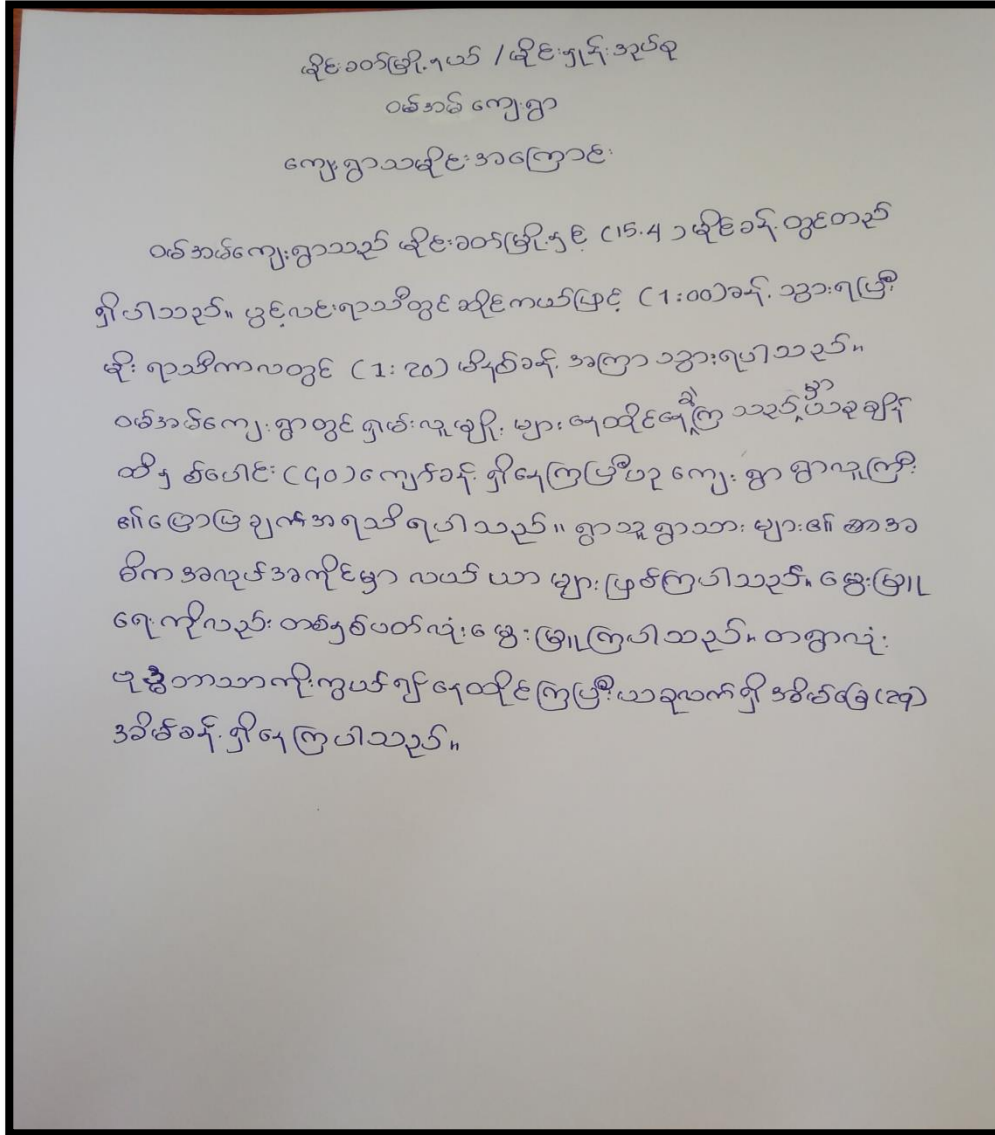 မိုင်းခတ်မြို့နယ် / မိုင်းရှုန်းအုပ်စု
ဝမ်အမ် ကျေးရွာ
ကျေးရွာသမိုင်းအကြောင်း
ဝမ်အမ်ကျေးရွာသည် မိုင်းခတ်မြို့နှင့် (15.4) မိုင်ခန့် တွင်တည်
ရှိပါသည်။ ပွင့်လင်းရာသီတွင်ဆိုင်ကယ်ဖြင့် (1:00)ခန့် သွားရပြီး
မိုး ရာသီကာလတွင် (1:20) မိနစ်ခန့် အကြာ သွားရပါသည်။
ဝမ်အမ်ကျေးရွာတွင် ရှမ်းလူမျိုး များနေထိုင်နေခဲ့ကြသည်မှာ ယခုချိန်
ထိနှစ်ပေါင်း (၄၀) ကျော်ခန့် ရှိနေကြပြီဟု ကျေးရွာ ရွာလူကြီး
၏ပြောပြချက်အရသိရပါသည်။ ရွာသူရွာသားများ၏ အဓ
ဓိကအလုပ်အကိုင်မှာ လယ် ယာ များဖြစ်ကြပါသည်။ မွေးမြူ
ရေးကိုလည်း တစ်နှစ်ပတ်လုံး မွေးမြူကြပါသည်။ တရွာလုံး
ဗုဒ္ဓဘာသာကိုးကွယ်၍နေထိုင်ကြပြီးယခုလက်ရှိအိမ်ခြေ (၃၅)
အိမ်ခန့် ရှိနေကြပါသည်။